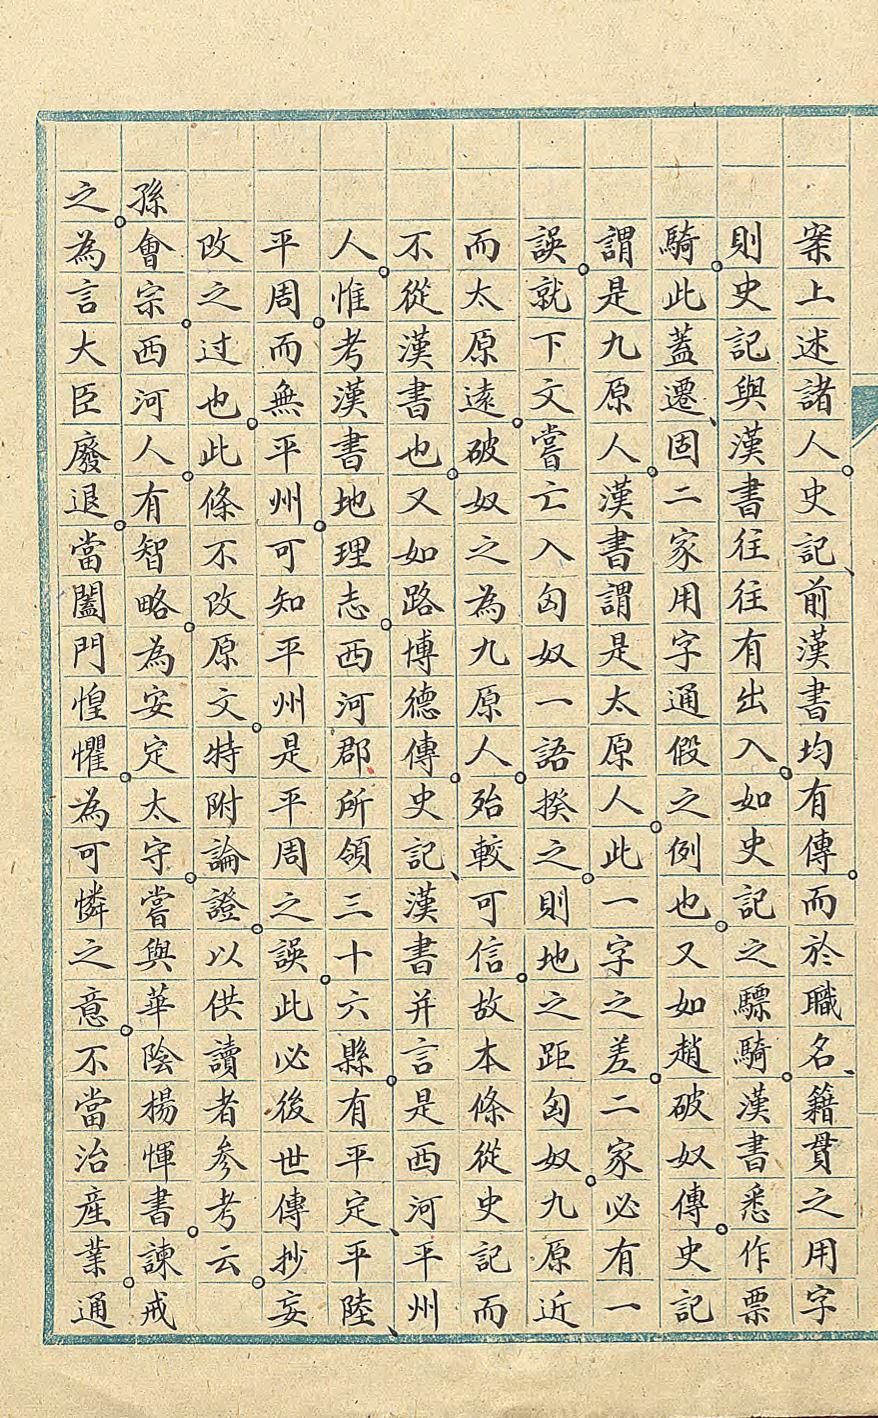 案上述諸人。史記、前漢書均有傳。而於職名、籍貫之用字
則。史記與漢書往往有出入。如史記之驃騎。漢書悉作票
騎。此蓋遷、固二家用字通假之例也。又如趙破奴傳。史記
謂是九原人。漢書謂是太原人。此一字之差。二家必有一
誤。就下文嘗亡入匈奴一語揆之。則地之距匈奴。九原近
而太原遠。破奴之為九原人。殆較可信。故本條從史記而
不從漢書也。又如路博德傳。史記、漢書并言是西河平州
人。惟考漢書地理志。西河郡所領三十六縣。有平定、平陸、
平周。而無平州。可知平州是平周之誤。此必後世傳抄妄
改之。过也。此條不改原文。特附論證。以供讀者參考云。
孫會宗西河人。有智略。為安定太守。嘗與華陰楊惲書。諫戒
之。為言大臣廢退。當闔門惶懼。為可憐之意。不當治產業。通